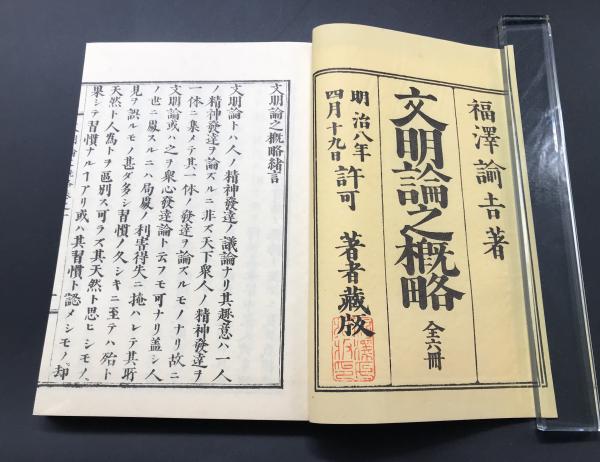 福澤諭吉著
文明論之概略 全六冊
明治八年
四月十九日 許可 著者藏版
文明論之概略緒言
文明論トハ人ノ精神發達ノ議論ナリ其趣意ハ一人
ノ精神發達ヲ論ズルニ非ズ天下衆人ノ精神發達ヲ
一体ニ集メテ其一体ノ發達ヲ論ズルモノナリ故ニ
文明論或ハ之ヲ衆心發達論ト云フモ可ナリ蓋シ人
ノ世ニ處スルニハ局處ノ利害得失ニ掩ハレテ其所
見ヲ誤ルモノ甚ダ多シ習慣ノ久シキニ至テハ殆ト
天然ト人為トヲ區別ス可ラズ其天然ト思ヒシモノ、
果シテ習慣ナルヿアリ或ハ其習慣ト認メシモノ、却